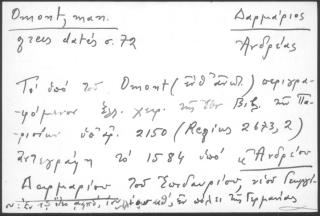 Omont, man. Δαρμάριος
grecs datés σ. 72 Ἀνδρέας
Τὸ ὑπὸ τοῦ Omont (ἔνθ' ἀνωτ.) περιγρα-
-φόμενον ἑλλ. χειρ. τῆς Ἐθν. Βιβ. τῆς Πα-
-ρισίων ὑπ' ἀρ. 2150 (Regius 2673,2)
ἀντεγράφη τὸ 1584 ὑπὸ Ἀνδρέου
Δαρμαρίου τοῦ Ἐπιδαυρίου υἱοῦ Γεωργί-
ου ἐν πόλει τῆς Γερμανίας